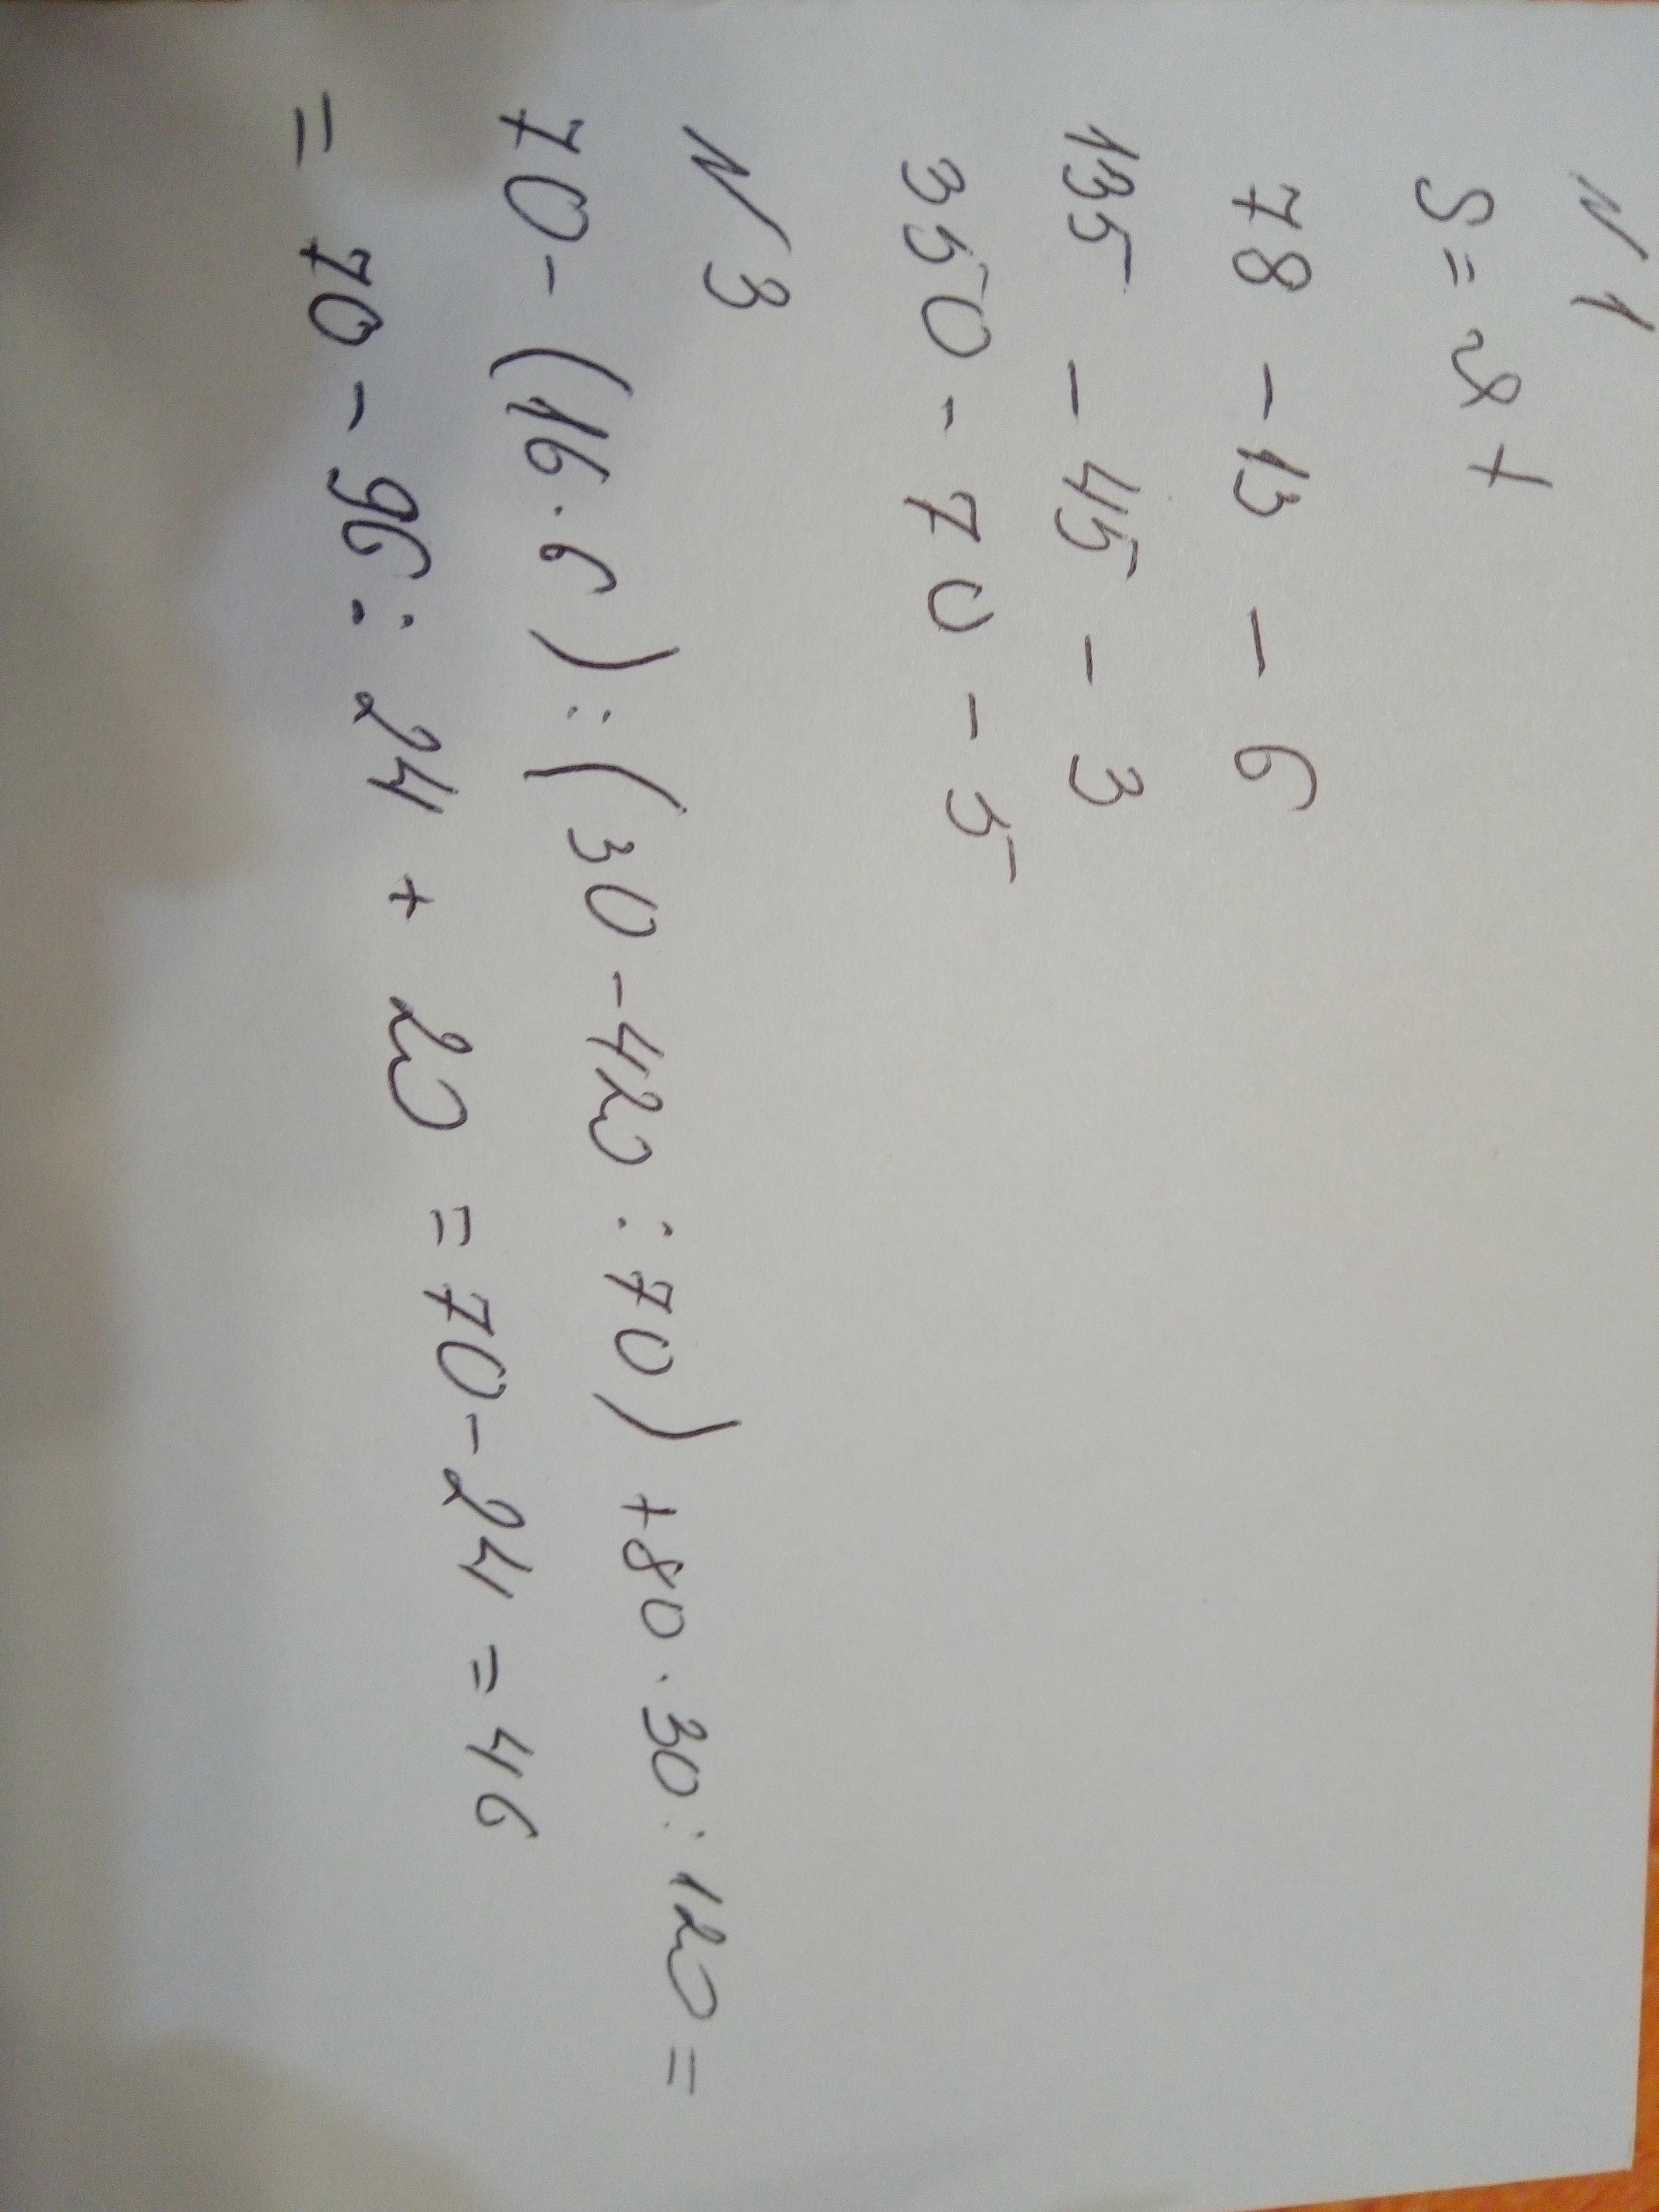 N 1
S = vt
78 - 13 - 6
135 - 45 - 3
350 - 70 - 5
N 3
70 - (16 · 6) : (30 - 420 : 70) + 80 · 30 : 120 =
= 70 - 96 : 24 + 20 = 70 - 24 = 46